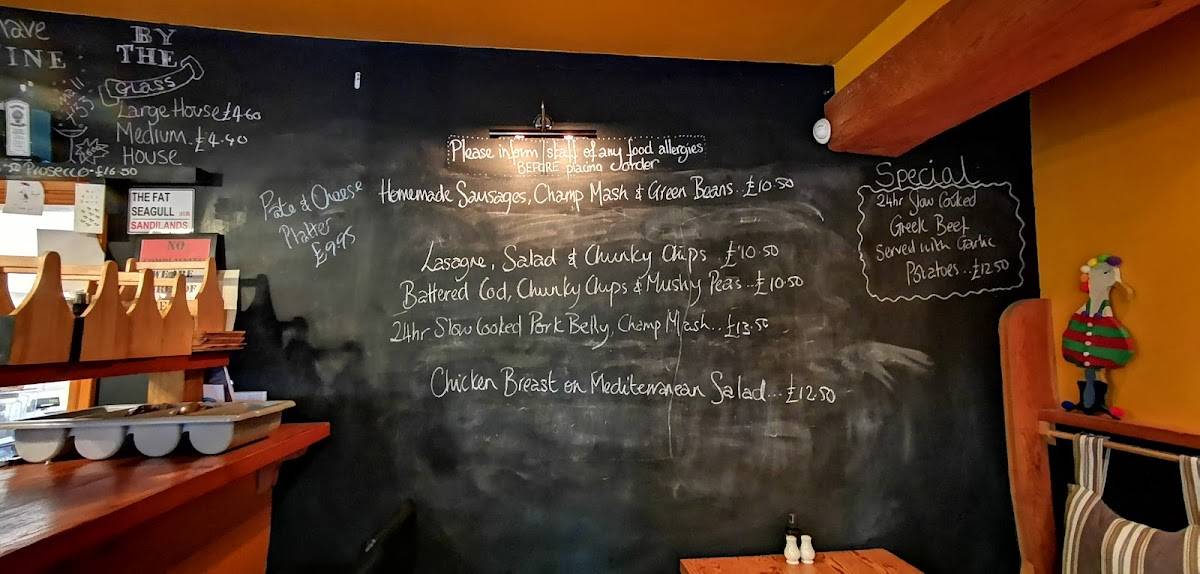 have
INE
BY
THE
GLASS
Large House £4.60
Medium £4.40
House
Prosecco £16.50
THE FAT
SEAGULL
SANDILANDS
NO
Please inform staff of any food allergies
BEFORE placing order
Pate & Cheese
Platter
£9.95
Homemade Sausages, Champ Mash & Green Beans..£10.50
Lasagne, Salad & Chunky Chips .£10.50
Battered Cod, Chunky Chips & Mushy Peas...£10.50
24hr Slow Cooked Pork Belly, Champ Mash...£13.50
Chicken Breast on Mediterranean Salad...£12.50
Special
24hr Slow Cooked
Greek Beef
Served with Garlic
Potatoes...£12.50